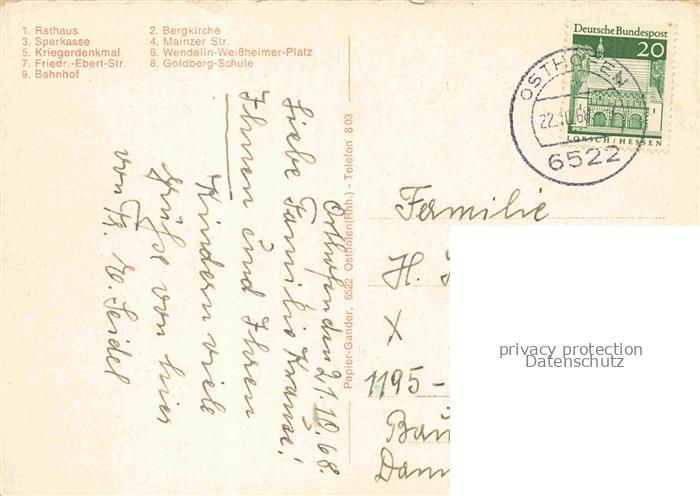 1. Rathaus
2. Bergkirche
3. Sparkasse
4. Mainzer Str.
5. Kriegerdenkmal
6. Wendelin-Weißheimer-Platz
7. Friedr.-Ebert-Str.
8. Goldberg-Schule
9. Bahnhof
Deutsche Bundespost
20
LORSCH/HESSEN
OSTHOFEN
22.10.68
6522
Osthofen den 21.10.68.
Liebe Familie
Ihnen und Ihren
Kindern viele
Grüße von hier
von Fr. E. Seidel
Papier-Gander, 6522 Osthofen(Rhh.) - Telefon 8 03
Familie
H.
X
1195-
privacy protection
Datenschutz